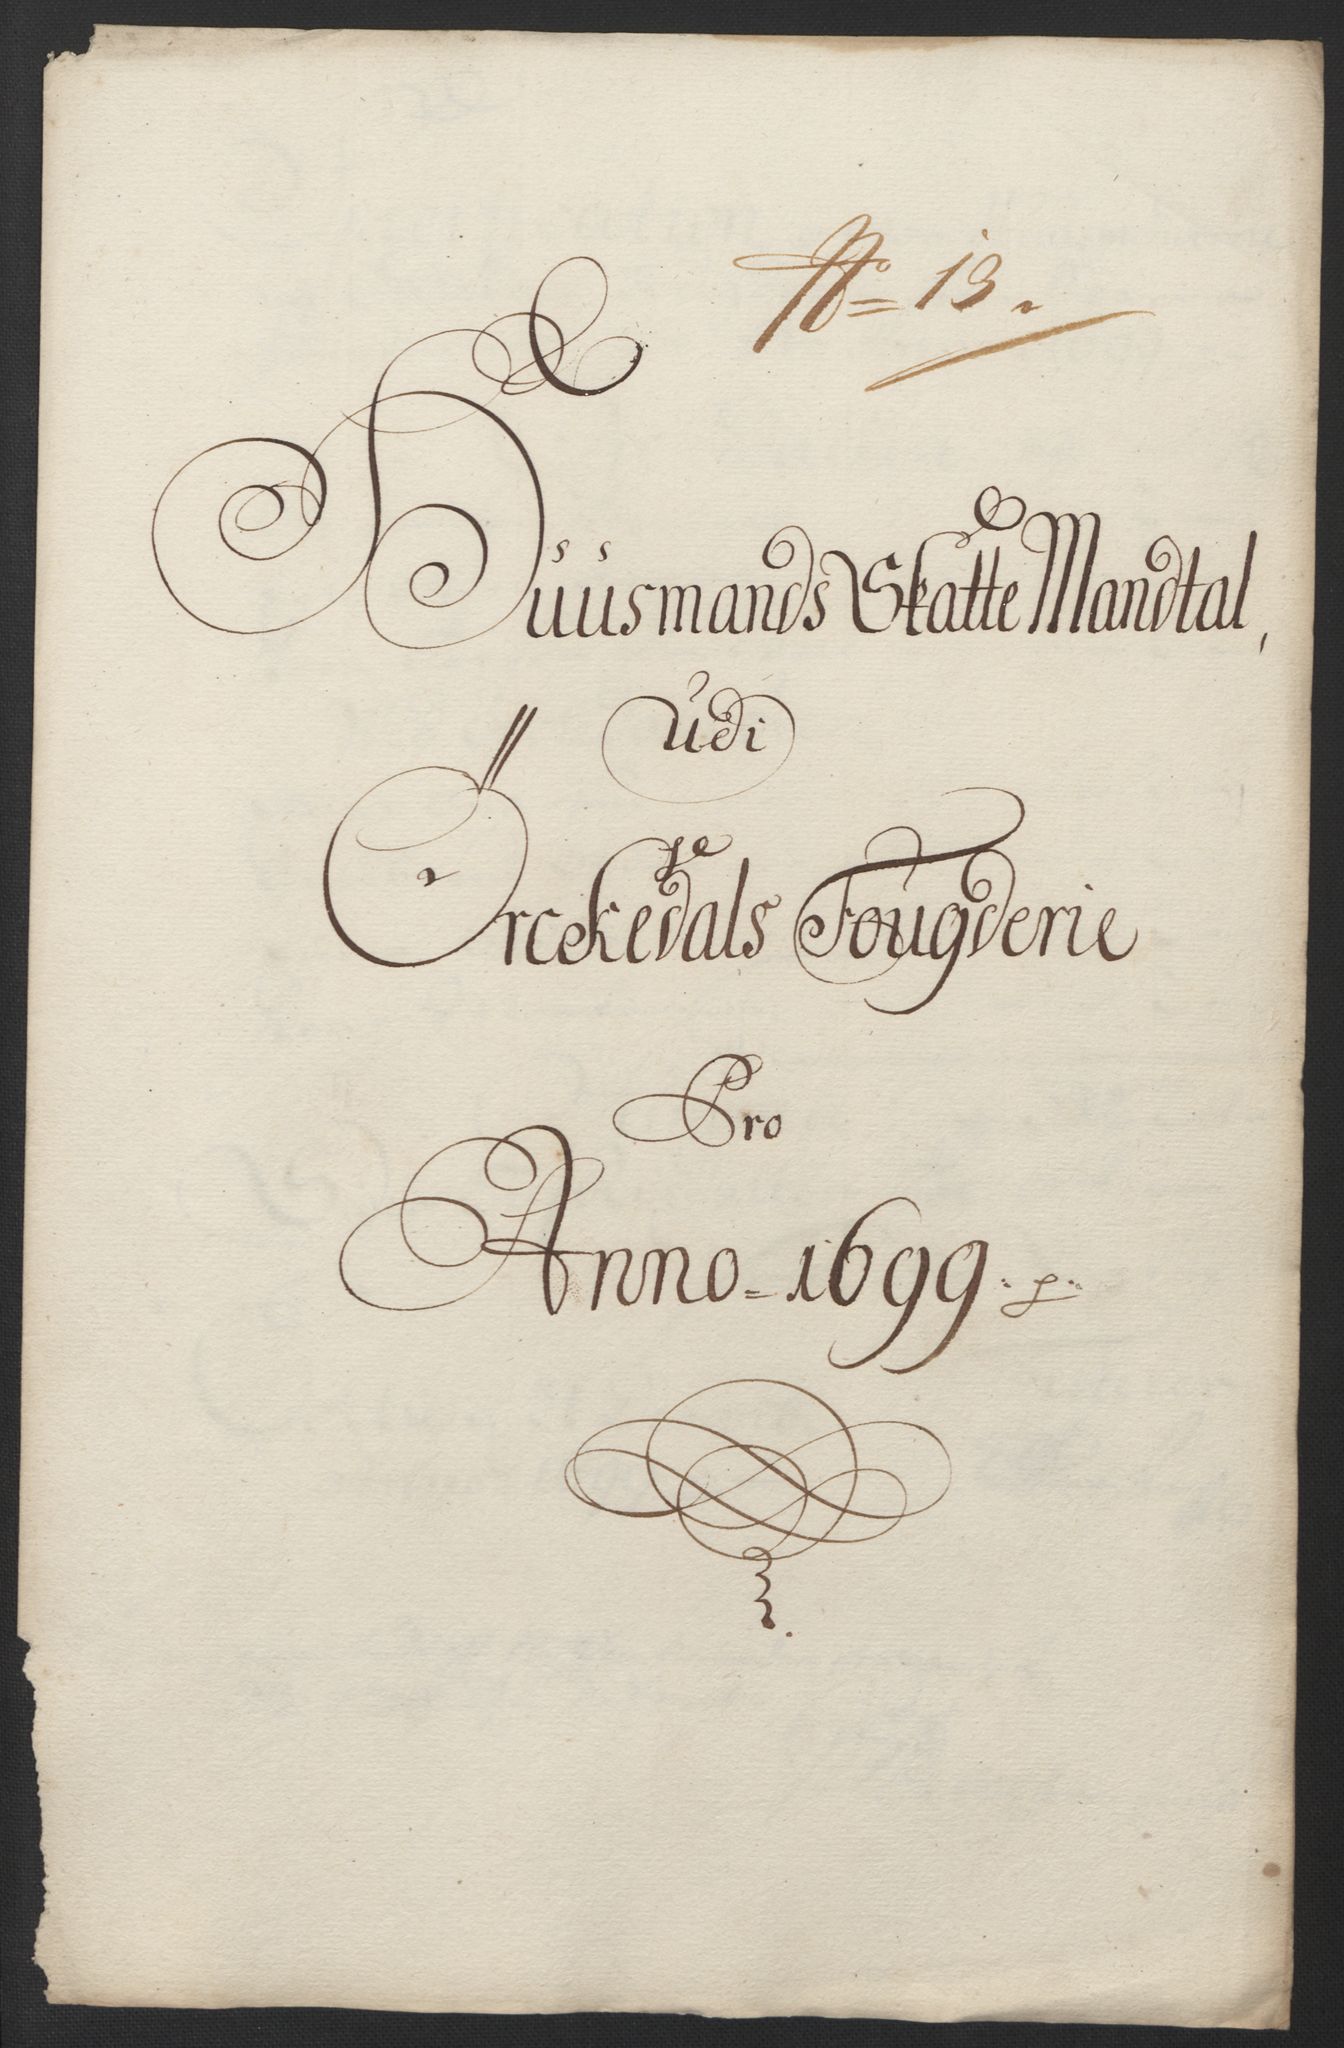 No = 13.
Huusmands Skatte Mandtal,
Udi
Orckedals Fougderie
Pro
Anno = 1699.